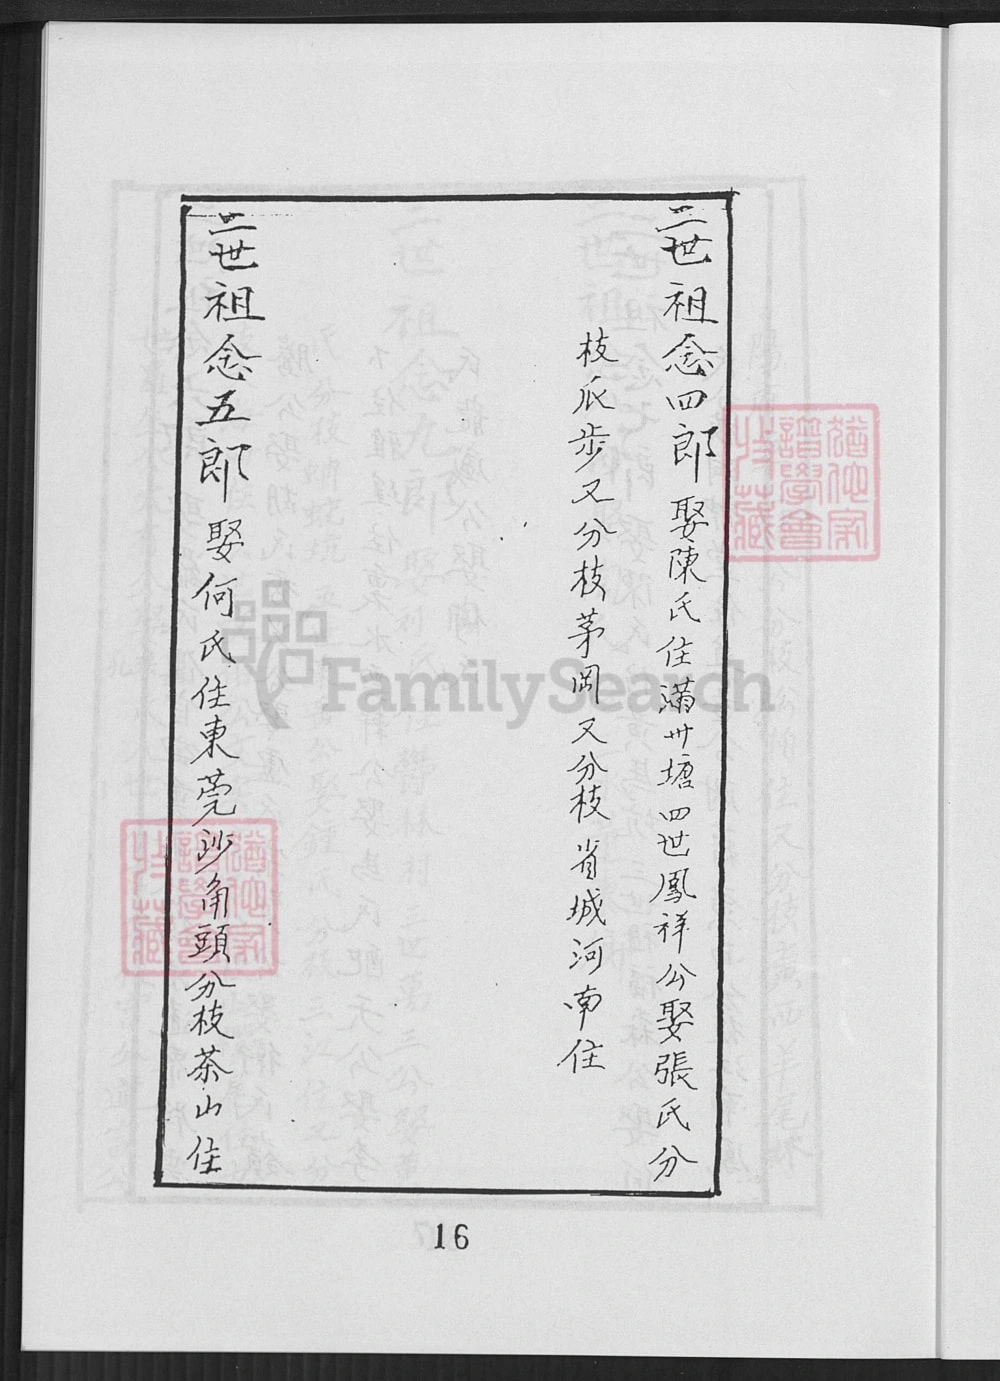 二世祖念四郎娶陳氏住滿卅塘四世鳳祥公娶張氏分
枝瓜步又分枝茅岡又分枝省城河南住
二世祖念五郎娶何氏住東莞沙角頭分枝茶山住
16
FamilySearch
譜學會
收藏
譜學會
收藏